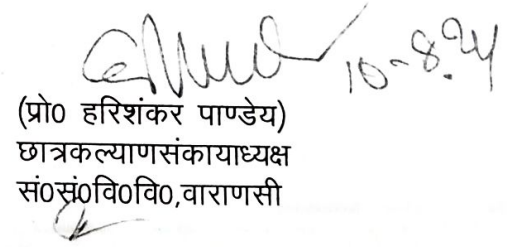 10-8-24
(प्रो0 हरिशंकर पाण्डेय)
छात्रकल्याणसंकायाध्यक्ष
सं0सं0वि0वि0,वाराणसी